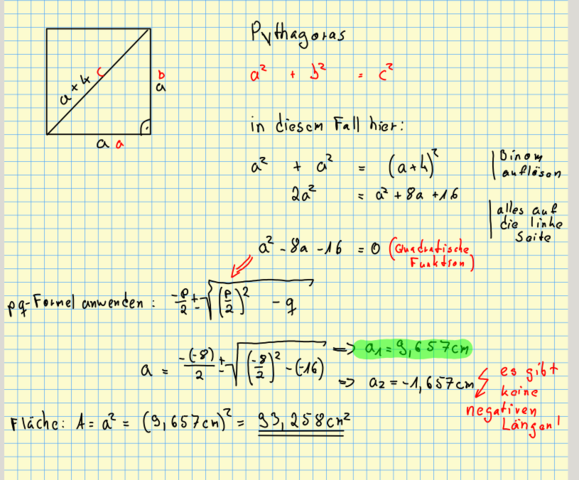 Pythagoras
a² + b² = c²
a + 4 c
b
a
a a
in diesem Fall hier:
a² + a² = (a+4)²
2a² = a² + 8a + 16
| Binom
auflösen
| alles auf
die linke
Seite
a² - 8a - 16 = 0 (Quadratische
Funktion)
pq-Formel anwenden: -p/2 ± √((p/2)² - q)
a = -(-8)/2 ± √((-8/2)² - (-16)) => a₁ = 9,657cm
=> a₂ = -1,657cm
es gibt
keine
negativen
Längen!
Fläche: A = a² = (9,657cm)² = 93,258cm²